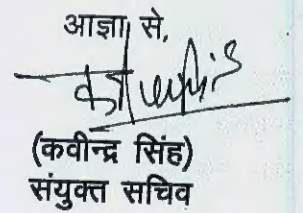 आज्ञा से,
(कवीन्द्र सिंह)
संयुक्त सचिव